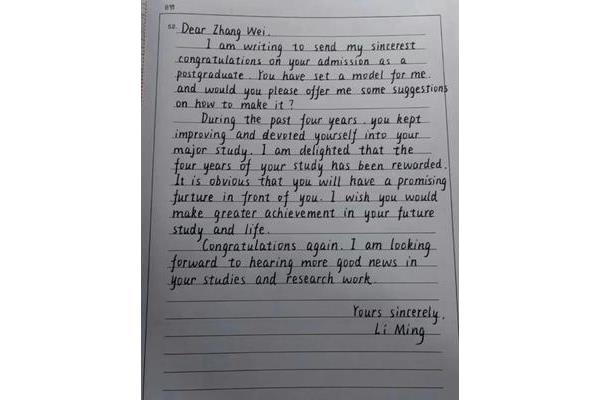 52. Dear Zhang Wei.
I am writing to send my sincerest
congratulations on your admission as a
postgraduate. You have set a model for me.
and would you please offer me some suggestions
on how to make it?
During the past four years, you kept
improving and devoted yourself into your
major study. I am delighted that the
four years of your study has been rewarded.
It is obvious that you will have a promising
furture in front of you. I wish you would
make greater achievement in your future
study and life.
Congratulations again. I am looking
forward to hearing more good news in
your studies and research work.
Yours sincerely.
Li Ming